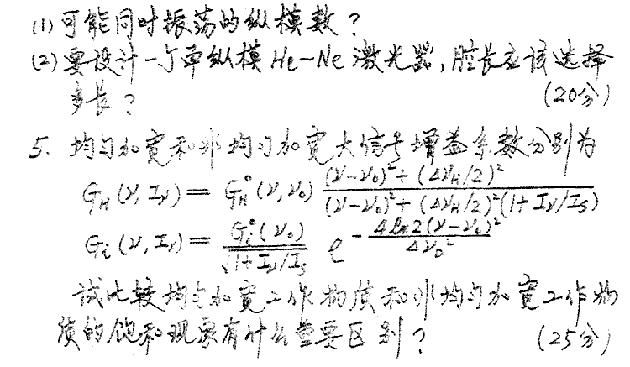 (1) 可能同时振荡的纵模数?
(2) 要设计一个单纵模 He-Ne 激光器,腔长应该选择
多长? (20分)
5. 均匀加宽和非均匀加宽大信号增益系数分别为
G_H(ν, I_ν) = G_H^0(ν, ν_0) \frac{(ν-ν_0)^2 + (Δν_H/2)^2}{(ν-ν_0)^2 + (Δν_H/2)^2(1+I_ν/I_S)}
G_i(ν, I_ν) = \frac{G_i^0(ν_0)}{\sqrt{1+I_ν/I_S}} e^{-\frac{4ln2(ν-ν_0)^2}{Δν_D^2}}
试比较均匀加宽工作物质和非均匀加宽工作物
质的饱和现象有什么重要区别? (25分)